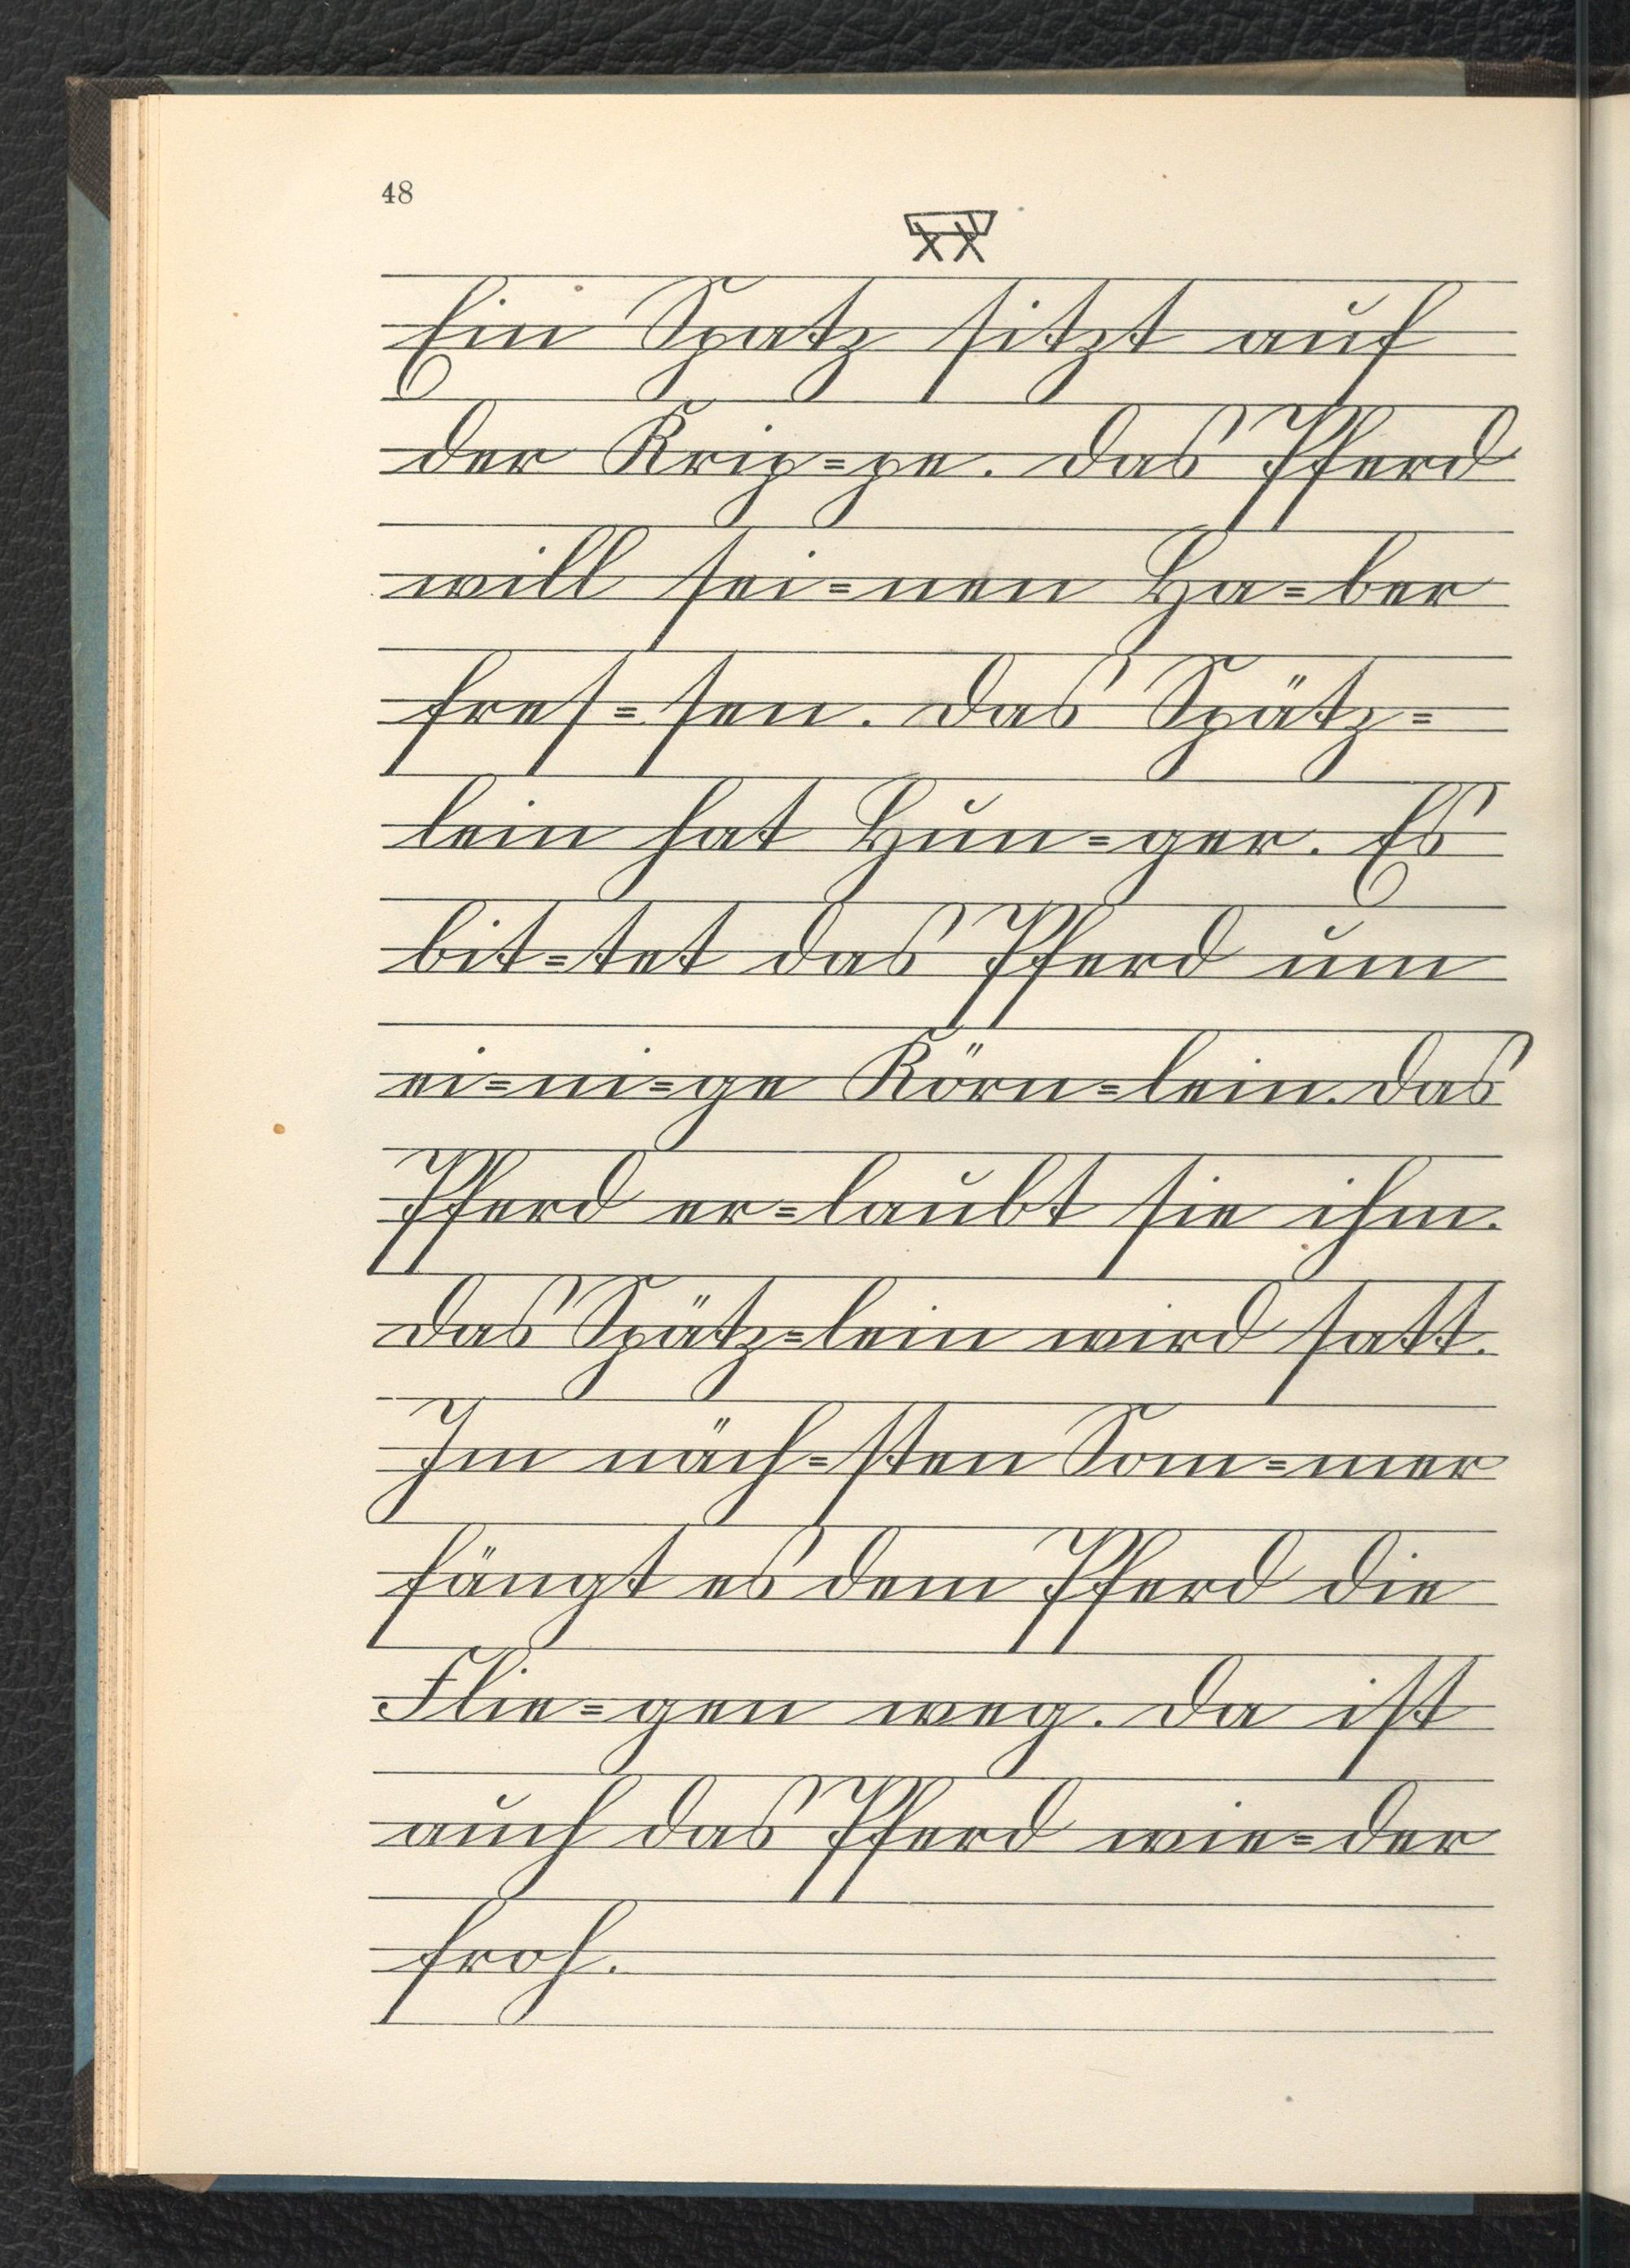 48
Ein Spatz sitzt auf
der Krip=pe. Das Pferd
will sei=nen Ha=ber
fres=sen. Das Spätz=
lein hat Hun=ger. Es
bit=tet das Pferd um
ei=ni=ge Körn=lein. Das
Pferd er=laubt sie ihm.
Das Spätz=lein wird satt.
Im näch=sten Som=mer
fängt es dem Pferd die
Flie=gen weg. Da ist
auch das Pferd wie=der
froh.